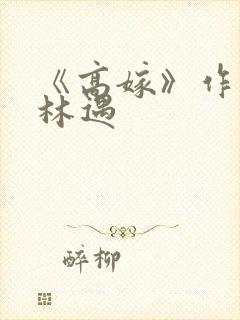 《高嫁》作
林遇
醉柳